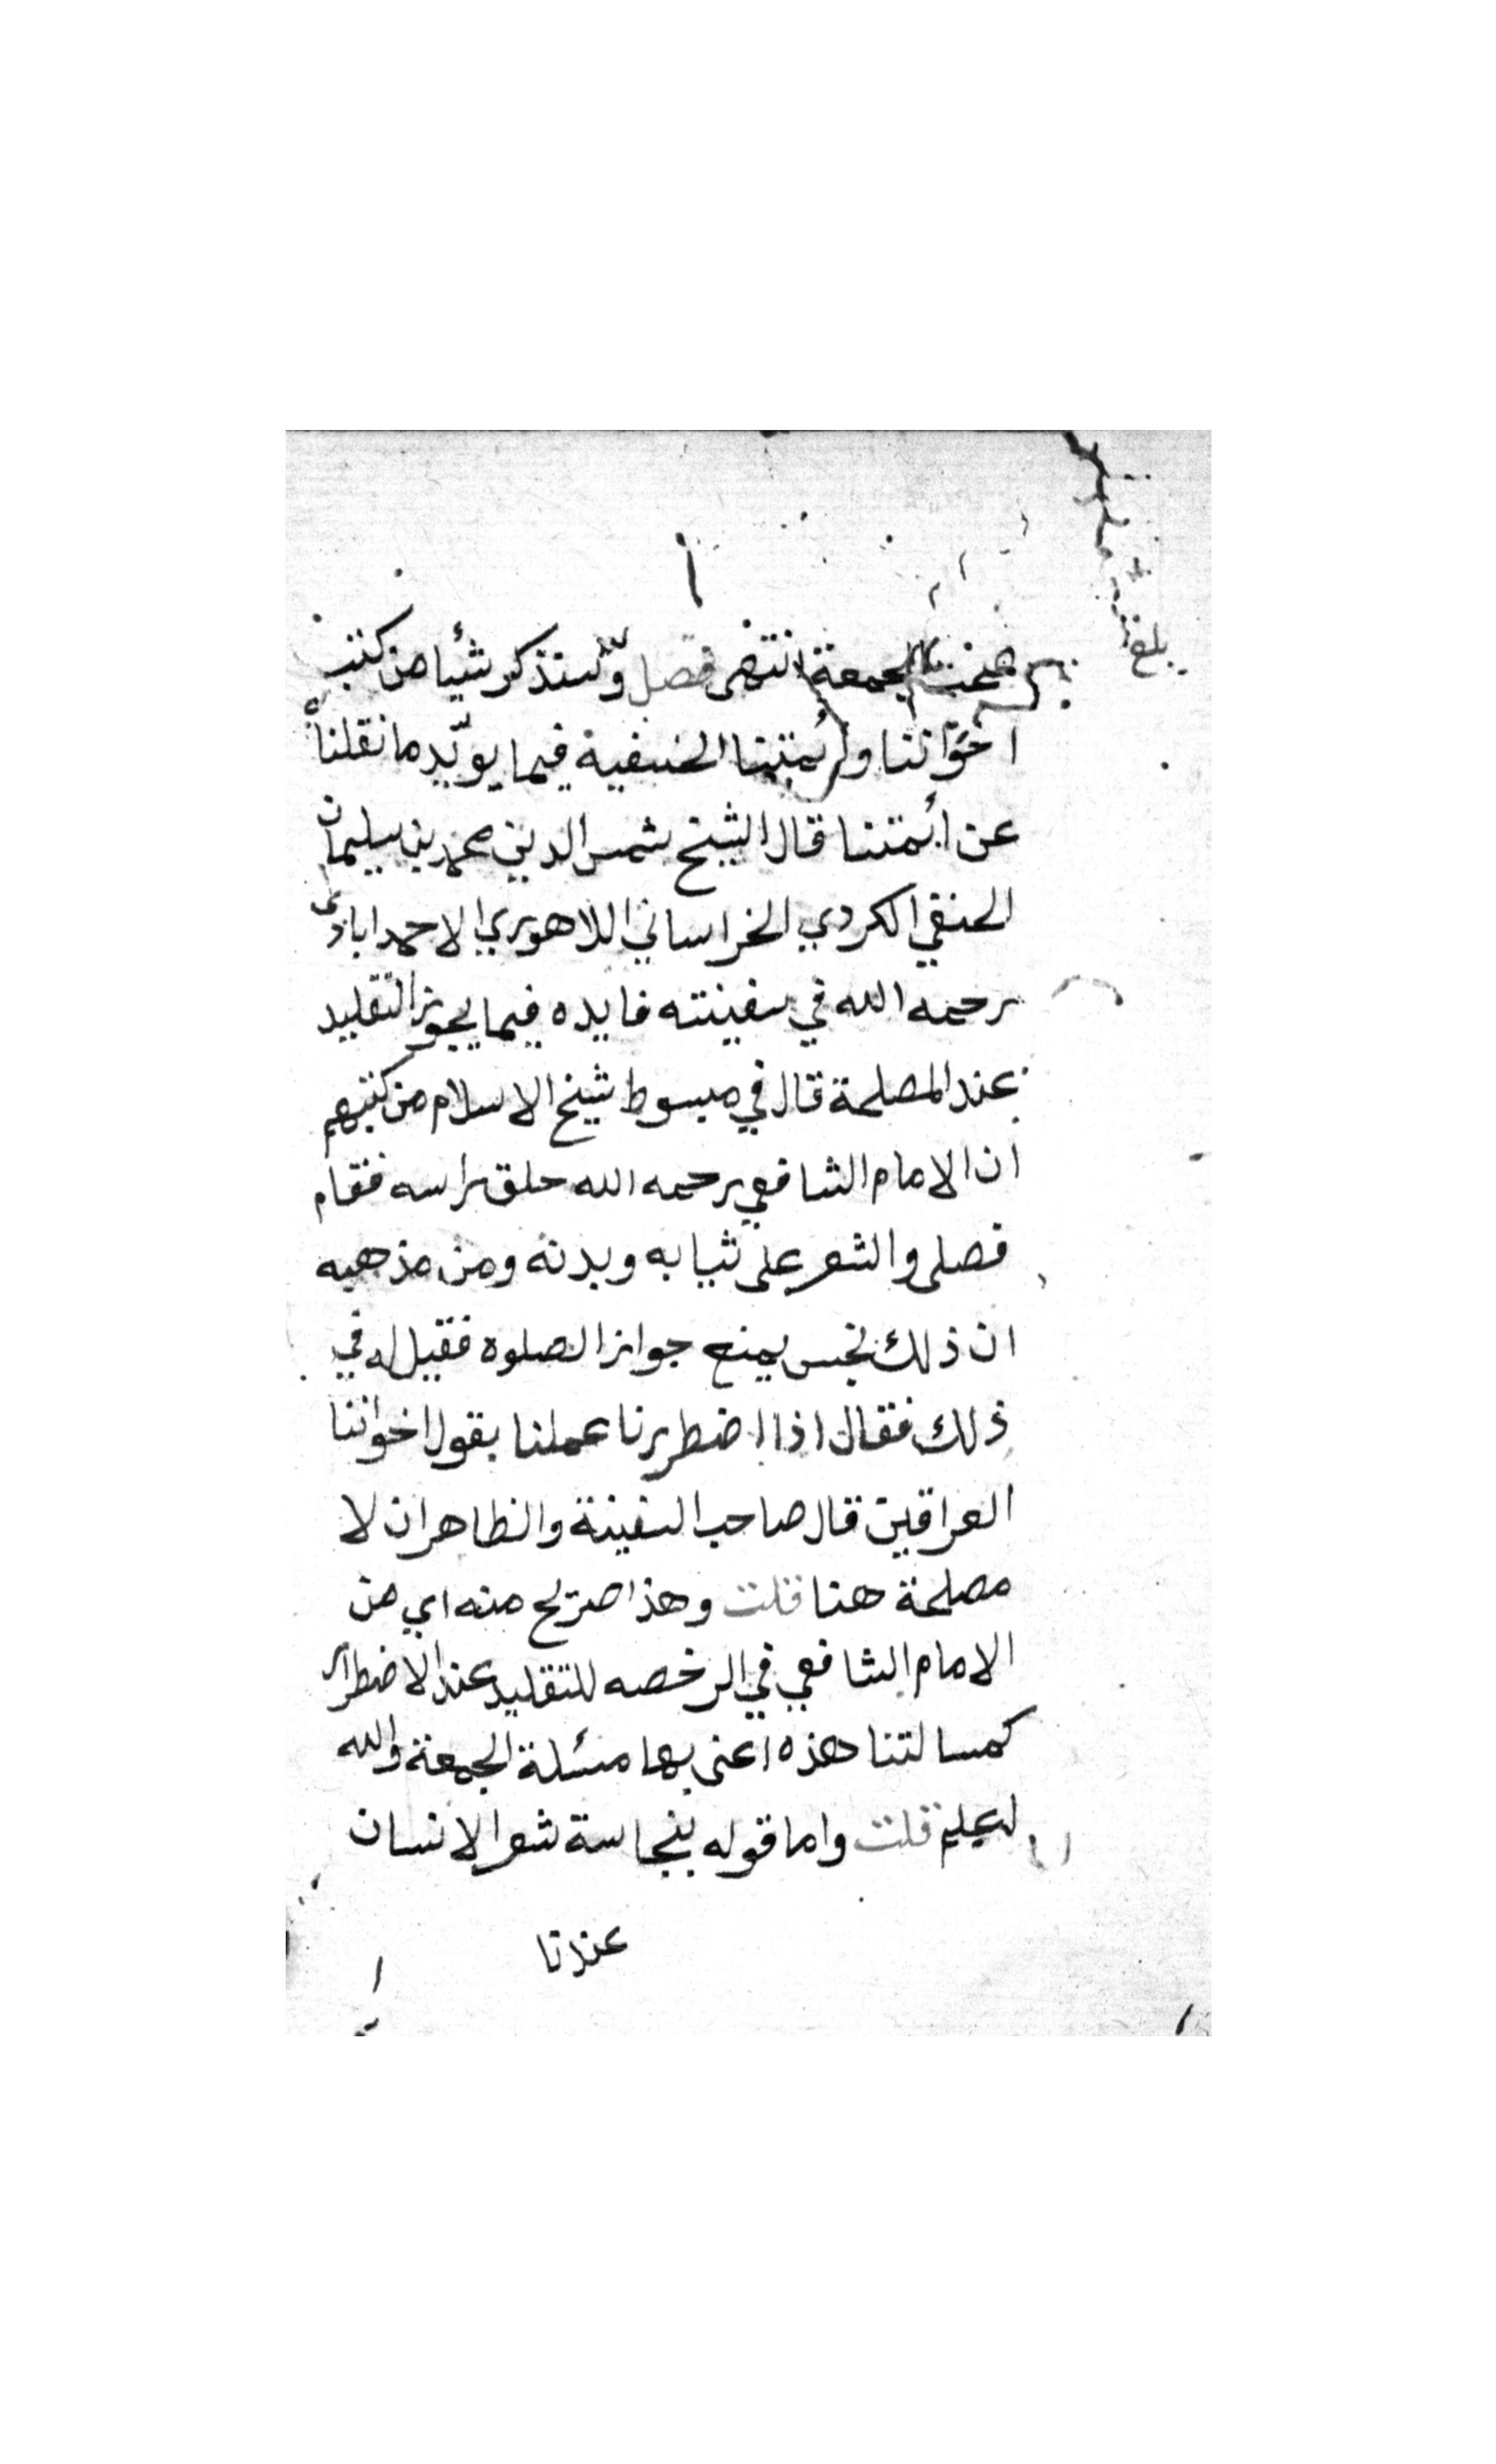 بلغ
الجمعة انتهى فصل ولنذكر شيئا من كتب
اخواننا وأئمتنا الحنفية فيما يويّد ما نقلناه
عن أئمتنا قال الشيخ شمس الدين محمد بن سليمان
الحنفي الكردي الخراساني اللاهوري الاحمدابادى
رحمه الله في سفينته فايده فيما يجوز التقليد
عند المصلحة قال في مبسوط شيخ الاسلام من كتبهم
ان الامام الشافعي رحمه الله حلق راسه فقام
فصلى والشعر على ثيابه وبدنه ومن مذهبه
ان ذلك نجس يمنع جواز الصلوه فقيل له في
ذلك فقال اذا اضطررنا عملنا بقول اخواننا
العراقين قال صاحب السفينة والظاهر ان لا
مصلحة هنا قلت وهذا صريح منه اي من
الامام الشافعي في الرخصه للتقليد عند الاضطرار
كمسالتنا هذه أعنى بها مسئلة الجمعة والله
قلت واما قوله بنجاسة شعر الانسان
عندنا